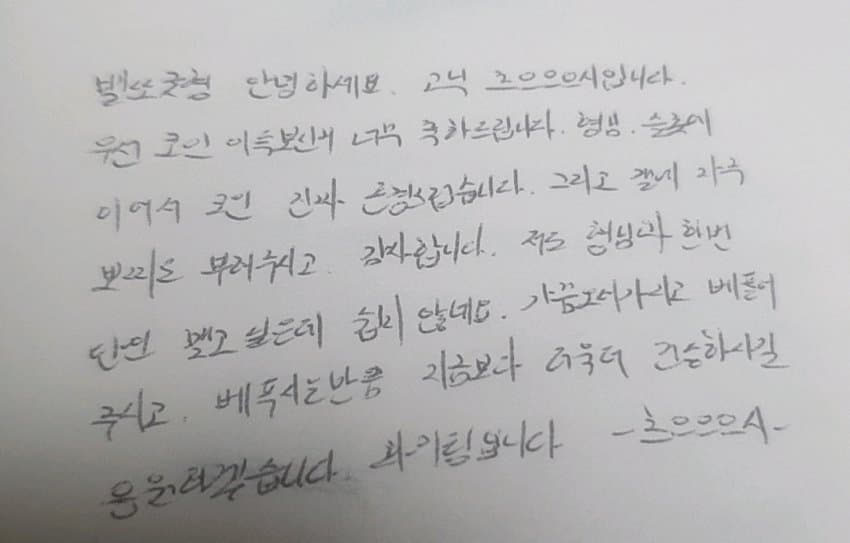 벨또굿형 안녕하세요. 고닉 츠으으으시입니다.
우선 코인 이득보신거 너무 축하드립니다. 형님. 슬롯에
이어서 코인 진짜 존경스럽습니다. 그리고 갤에 자주
뿌려주시고. 감사합니다. 저도 형님과 한번
맺고 싶은데 쉽지 않네요. 가끔 오셔가지고 베풀어
주시고. 베푸시는만큼 지금보다 더욱더 건승하시길
응원하겠습니다. 화이팅입니다 -츠으으으시-